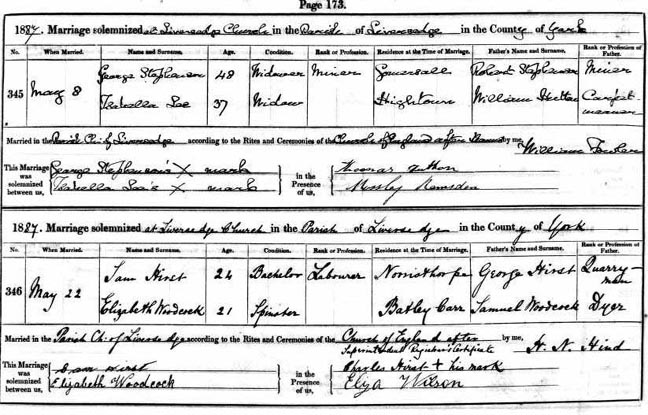 Page 173.
1887. Marriage solemnized at Liversedge Church in the Parish of Liversedge in the County of York
No. When Married. Name and Surname. Age. Condition. Rank or Profession. Residence at the Time of Marriage. Father's Name and Surname. Rank or Profession of Father.
345 May 8 George Stephenson 48 Widower Miner Gomersall Robert Stephenson Miner
Isabella Lee 37 Widow Hightown William Carpet-
Married in the Parish Ch. of Liversedge according to the Rites and Ceremonies of the Church of England after Banns by me, William Fowler
This Marriage was solemnized between us, George Stephenson's X mark in the Presence of us, Thomas
Isabella Lee's X mark Mosley Ramsden
1887. Marriage solemnized at Liversedge Church in the Parish of Liversedge in the County of York
No. When Married. Name and Surname. Age. Condition. Rank or Profession. Residence at the Time of Marriage. Father's Name and Surname. Rank or Profession of Father.
346 May 22 Sam Hirst 24 Bachelor Labourer Norristhorpe George Hirst Quarry-man
Elizabeth Woodcock 21 Spinster Batley Carr Samuel Woodcock Dyer
Married in the Parish Ch. of Liversedge according to the Rites and Ceremonies of the Church of England after Superintendent Registrar's Certificate by me, H. N. Hind
This Marriage was solemnized between us, Sam Hirst in the Presence of us, Charles Hirst + his mark
Elizabeth Woodcock Eliza Wilson